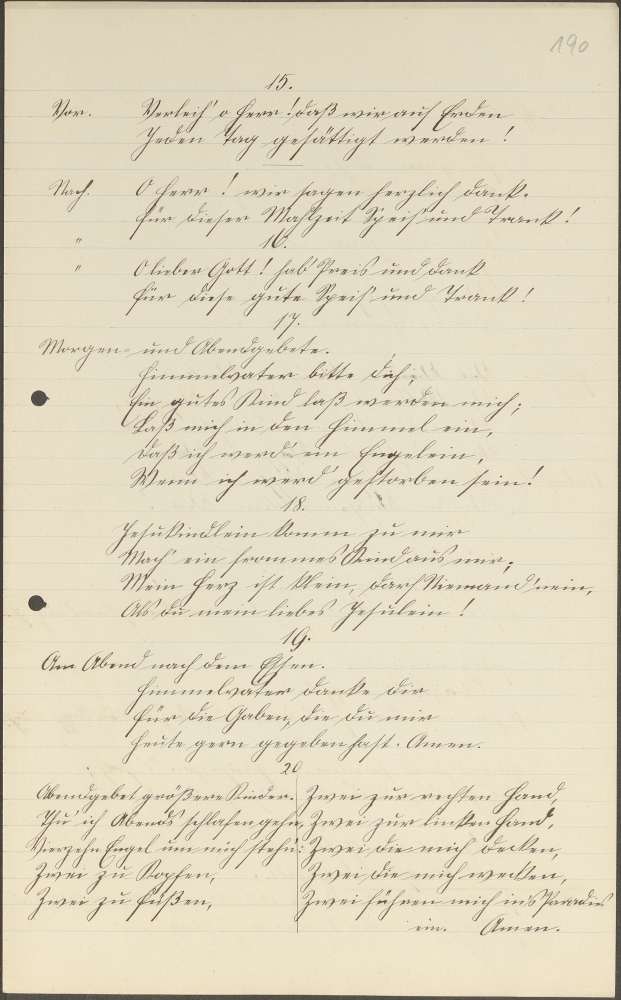 190
15.
Vor. Verleih' o Herr! daß wir auf Erden
Jeden Tag gesättigt werden!
Nach. O Herr! wir sagen herzlich Dank.
Für dieser Mahlzeit Speis' und Trank!
" 16.
" O lieber Gott! hab' Preis und Dank
Für diese gute Speis' und Trank!
17.
Morgen- und Abendgebete.
Himmelvater bitte dich;
Ein gutes Kind laß werden mich;
Laß mich in den Himmel ein,
Daß ich werd' ein Engelein,
Wenn ich werd' gestorben sein!
18.
Jesukindlein komm zu mir
Mach' ein frommes Kind aus mir;
Mein Herz ist klein, darf Niemand 'nein,
Als du mein liebes Jesulein!
19.
Am Abend nach dem Essen.
Himmelvater danke dir
Für die Gaben, die du mir
Heute gern gegeben hast. Amen.
20
Abendgebet größerer Kinder.
Thu' ich Abends schlafen gehn,
Vierzehn Engel um mich stehn:
Zwei zu Kopfen,
Zwei zu Füßen,
Zwei zur rechten Hand,
Zwei zur linken Hand,
Zwei die mich decken,
Zwei die mich wecken,
Zwei führen mich ins Paradies
ein. Amen.